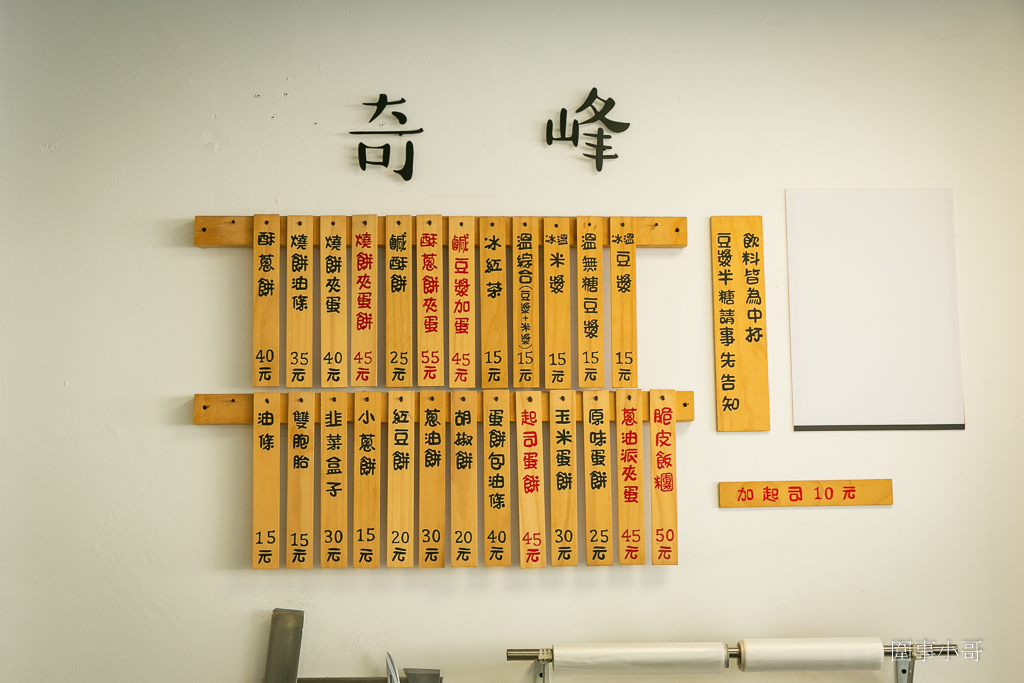 奇峰
冰溫豆漿 15元
溫無糖豆漿 15元
冰溫米漿 15元
溫綜合(豆漿+米漿) 15元
冰紅茶 15元
鹹豆漿加蛋 45元
酥蔥餅夾蛋 55元
鹹酥餅 25元
燒餅夾蛋餅 45元
燒餅夾蛋 40元
燒餅油條 35元
酥蔥餅 40元
脆皮飯糰 50元
蔥油派夾蛋 45元
原味蛋餅 25元
玉米蛋餅 30元
起司蛋餅 45元
蛋餅包油條 40元
胡椒餅 20元
蔥油餅 30元
紅豆餅 20元
小蔥餅 15元
韭菜盒子 30元
雙胞胎 15元
油條 15元
飲料皆為中杯
豆漿半糖請事先告知
加起司10元
圍事小哥